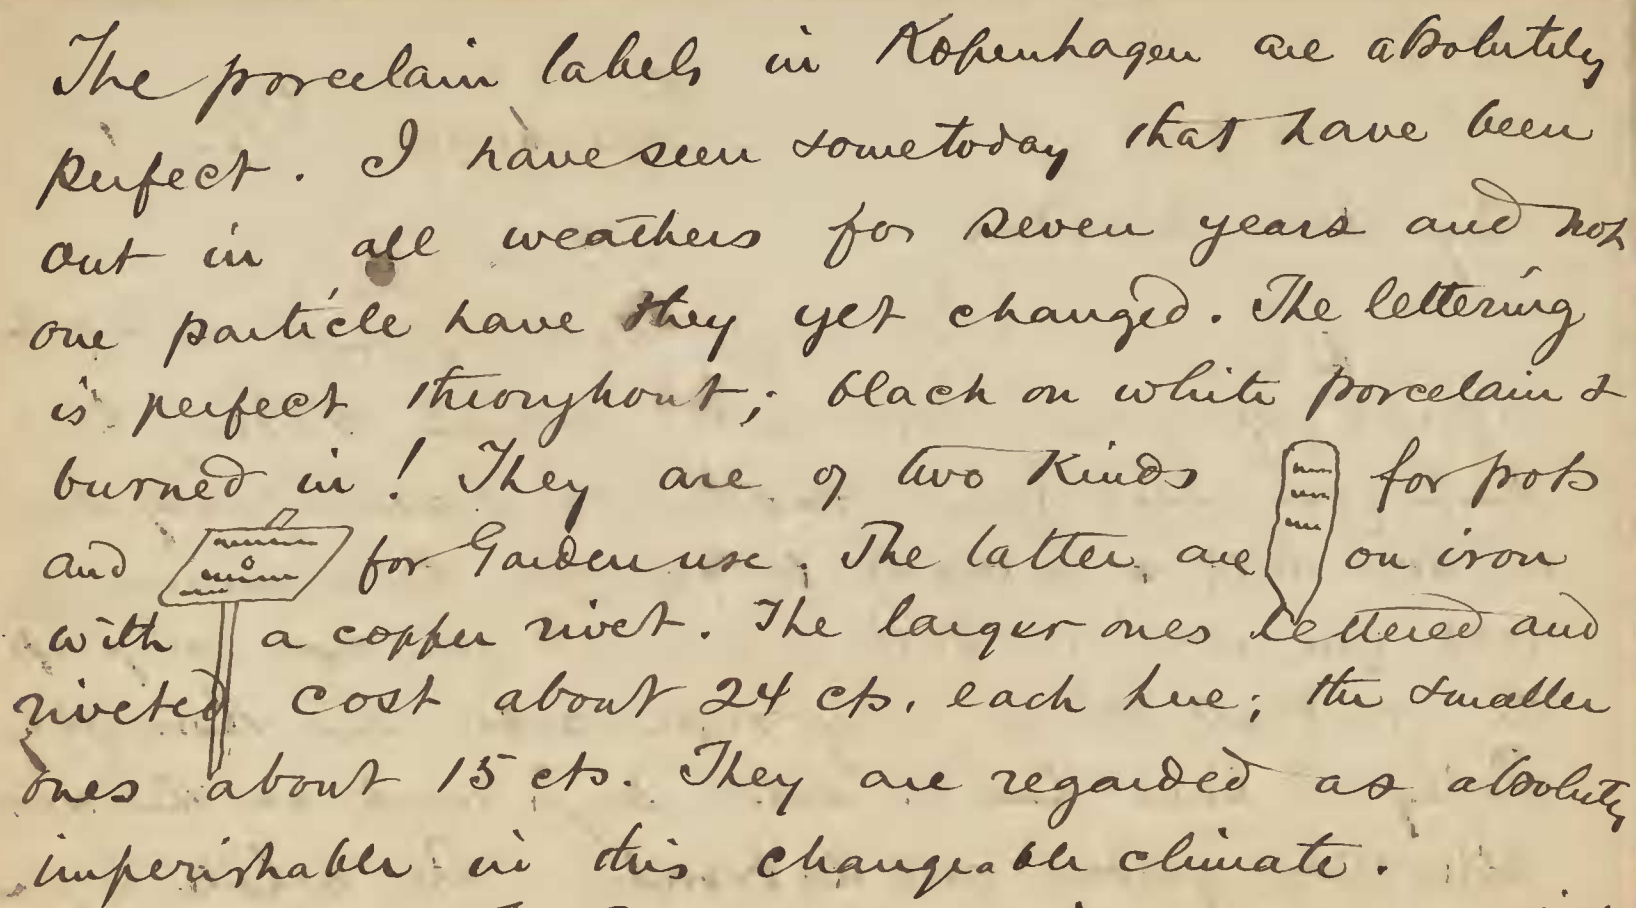 The porcelain labels in Kopenhagen are absolutely
perfect. I have seen some today that have been
out in all weathers for seven years and not
one particle have they yet changed. The lettering
is perfect throughout; black on white porcelain &
burned in! They are of two kinds for pots
and for Garden use. The latter are on iron
with a copper rivet. The larger ones lettered and
riveted cost about 24 cts. each here; the smaller
ones about 15 cts. They are regarded as absolutely
imperishable in this changeable climate.